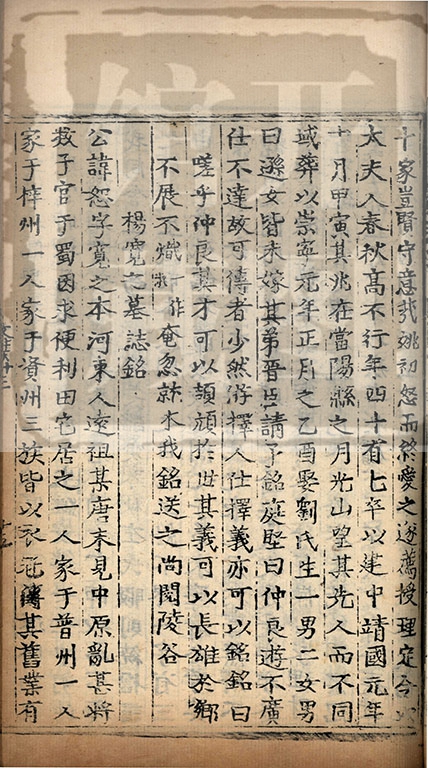 十家豈賢守意哉姚初怒而終愛之遂薦授理定令以
太夫人春秋髙不行年四十有七卒以建中靖國元年
十月甲寅其兆在當陽縣之月光山望其先人而不同
域葬以崇寧元年正月之乙酉娶劉氏生一男二女男
曰遜女皆未嫁其弟晋臣請予銘庭堅曰仲良遊不廣
仕不達故可傳者少然游擇人仕擇義亦可以銘銘曰
嗟乎仲良其才可以頡頏扵世其義可以長雄扵鄉
不展不熾 奄忽就木我銘送之尚閱陵谷
楊寛之墓誌銘
公諱恕字寛之本河東人逺祖某唐末見中原亂甚將
教子官于蜀因求便利田宅居之一人家于普州一人
家于梓州一人家于資州三族皆以衣冠傳其舊業有